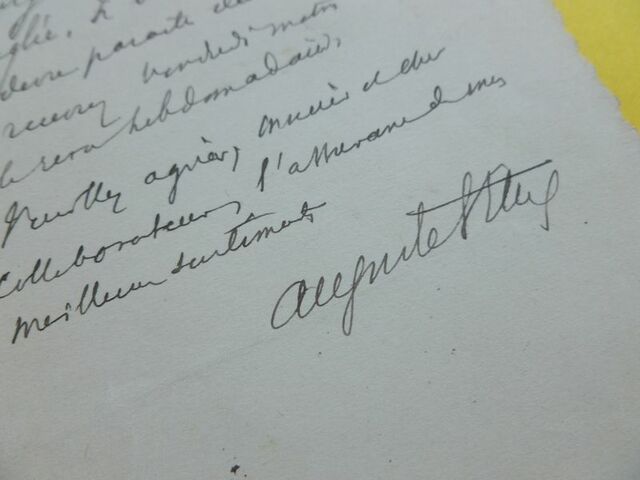 devra paraitre
recevrez vendredi matin
le sera hebdomadaire,
Veuillez agréer, Monsieur et cher
Collaborateur, l'assurance de mes
meilleurs sentiments
Auguste